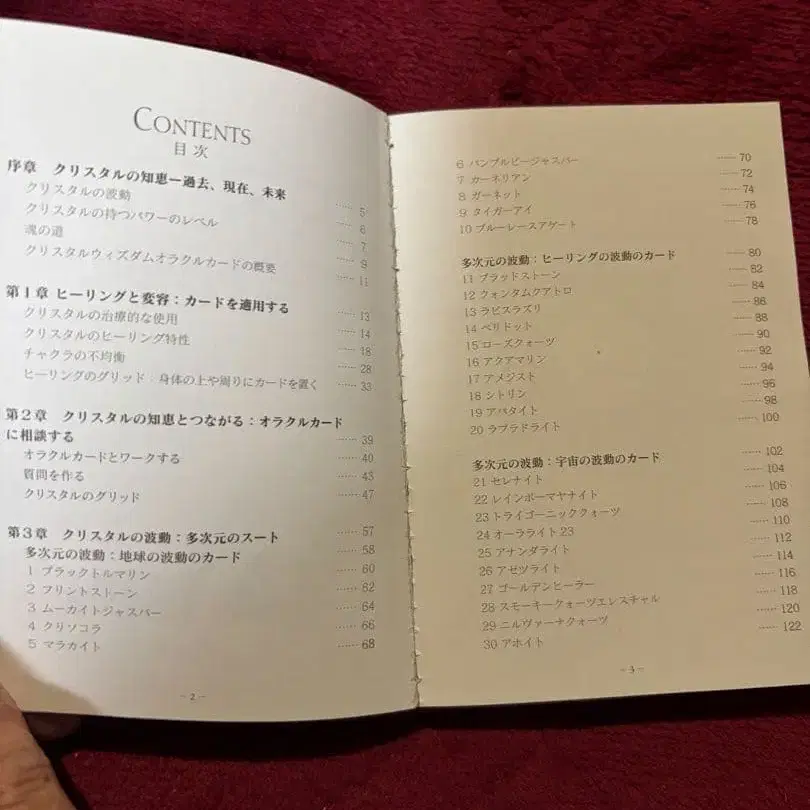 CONTENTS
目次
序章 クリスタルの知恵ー過去、現在、未来 …… 5
クリスタルの波動 …… 6
クリスタルの持つパワーのレベル …… 7
魂の道 …… 9
クリスタルウィズダムオラクルカードの概要 …… 11
第1章 ヒーリングと変容：カードを適用する …… 13
クリスタルの治療的な使用 …… 14
クリスタルのヒーリング特性 …… 18
チャクラの不均衡 …… 28
ヒーリングのグリッド：身体の上や周りにカードを置く …… 33
第2章 クリスタルの知恵とつながる：オラクルカード
に相談する …… 39
オラクルカードとワークする …… 40
質問を作る …… 43
クリスタルのグリッド …… 47
第3章 クリスタルの波動：多次元のスート …… 57
多次元の波動：地球の波動のカード …… 58
1 ブラックトルマリン …… 60
2 フリントストーン …… 62
3 ムーカイトジャスパー …… 64
4 クリソコラ …… 66
5 マラカイト …… 68
－2－
6 バンブルビージャスパー …… 70
7 カーネリアン …… 72
8 ガーネット …… 74
9 タイガーアイ …… 76
10 ブルーレースアゲート …… 78
多次元の波動：ヒーリングの波動のカード …… 80
11 ブラッドストーン …… 82
12 クォンタムクアトロ …… 84
13 ラピスラズリ …… 86
14 ペリドット …… 88
15 ローズクォーツ …… 90
16 アクアマリン …… 92
17 アメジスト …… 94
18 シトリン …… 96
19 アパタイト …… 98
20 ラブラドライト …… 100
多次元の波動：宇宙の波動のカード …… 102
21 セレナイト …… 104
22 レインボーマヤナイト …… 106
23 トライゴーニッククォーツ …… 108
24 オーラライト23 …… 110
25 アナンダライト …… 112
26 アゼツライト …… 114
27 ゴールデンヒーラー …… 116
28 スモーキークォーツエレスチャル …… 118
29 ニルヴァーナクォーツ …… 120
30 アホイト …… 122
－3－